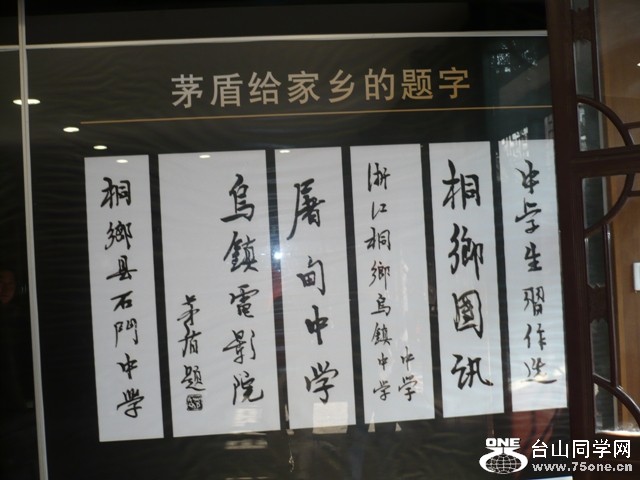 茅盾给家乡的题字
中学生習作选
桐鄉图讯
浙江桐鄉烏鎮中学
中学
屠甸中学
烏鎮電影院
茅盾題
桐鄉县石门中学
ONE
台山同学网
www.75one.cn